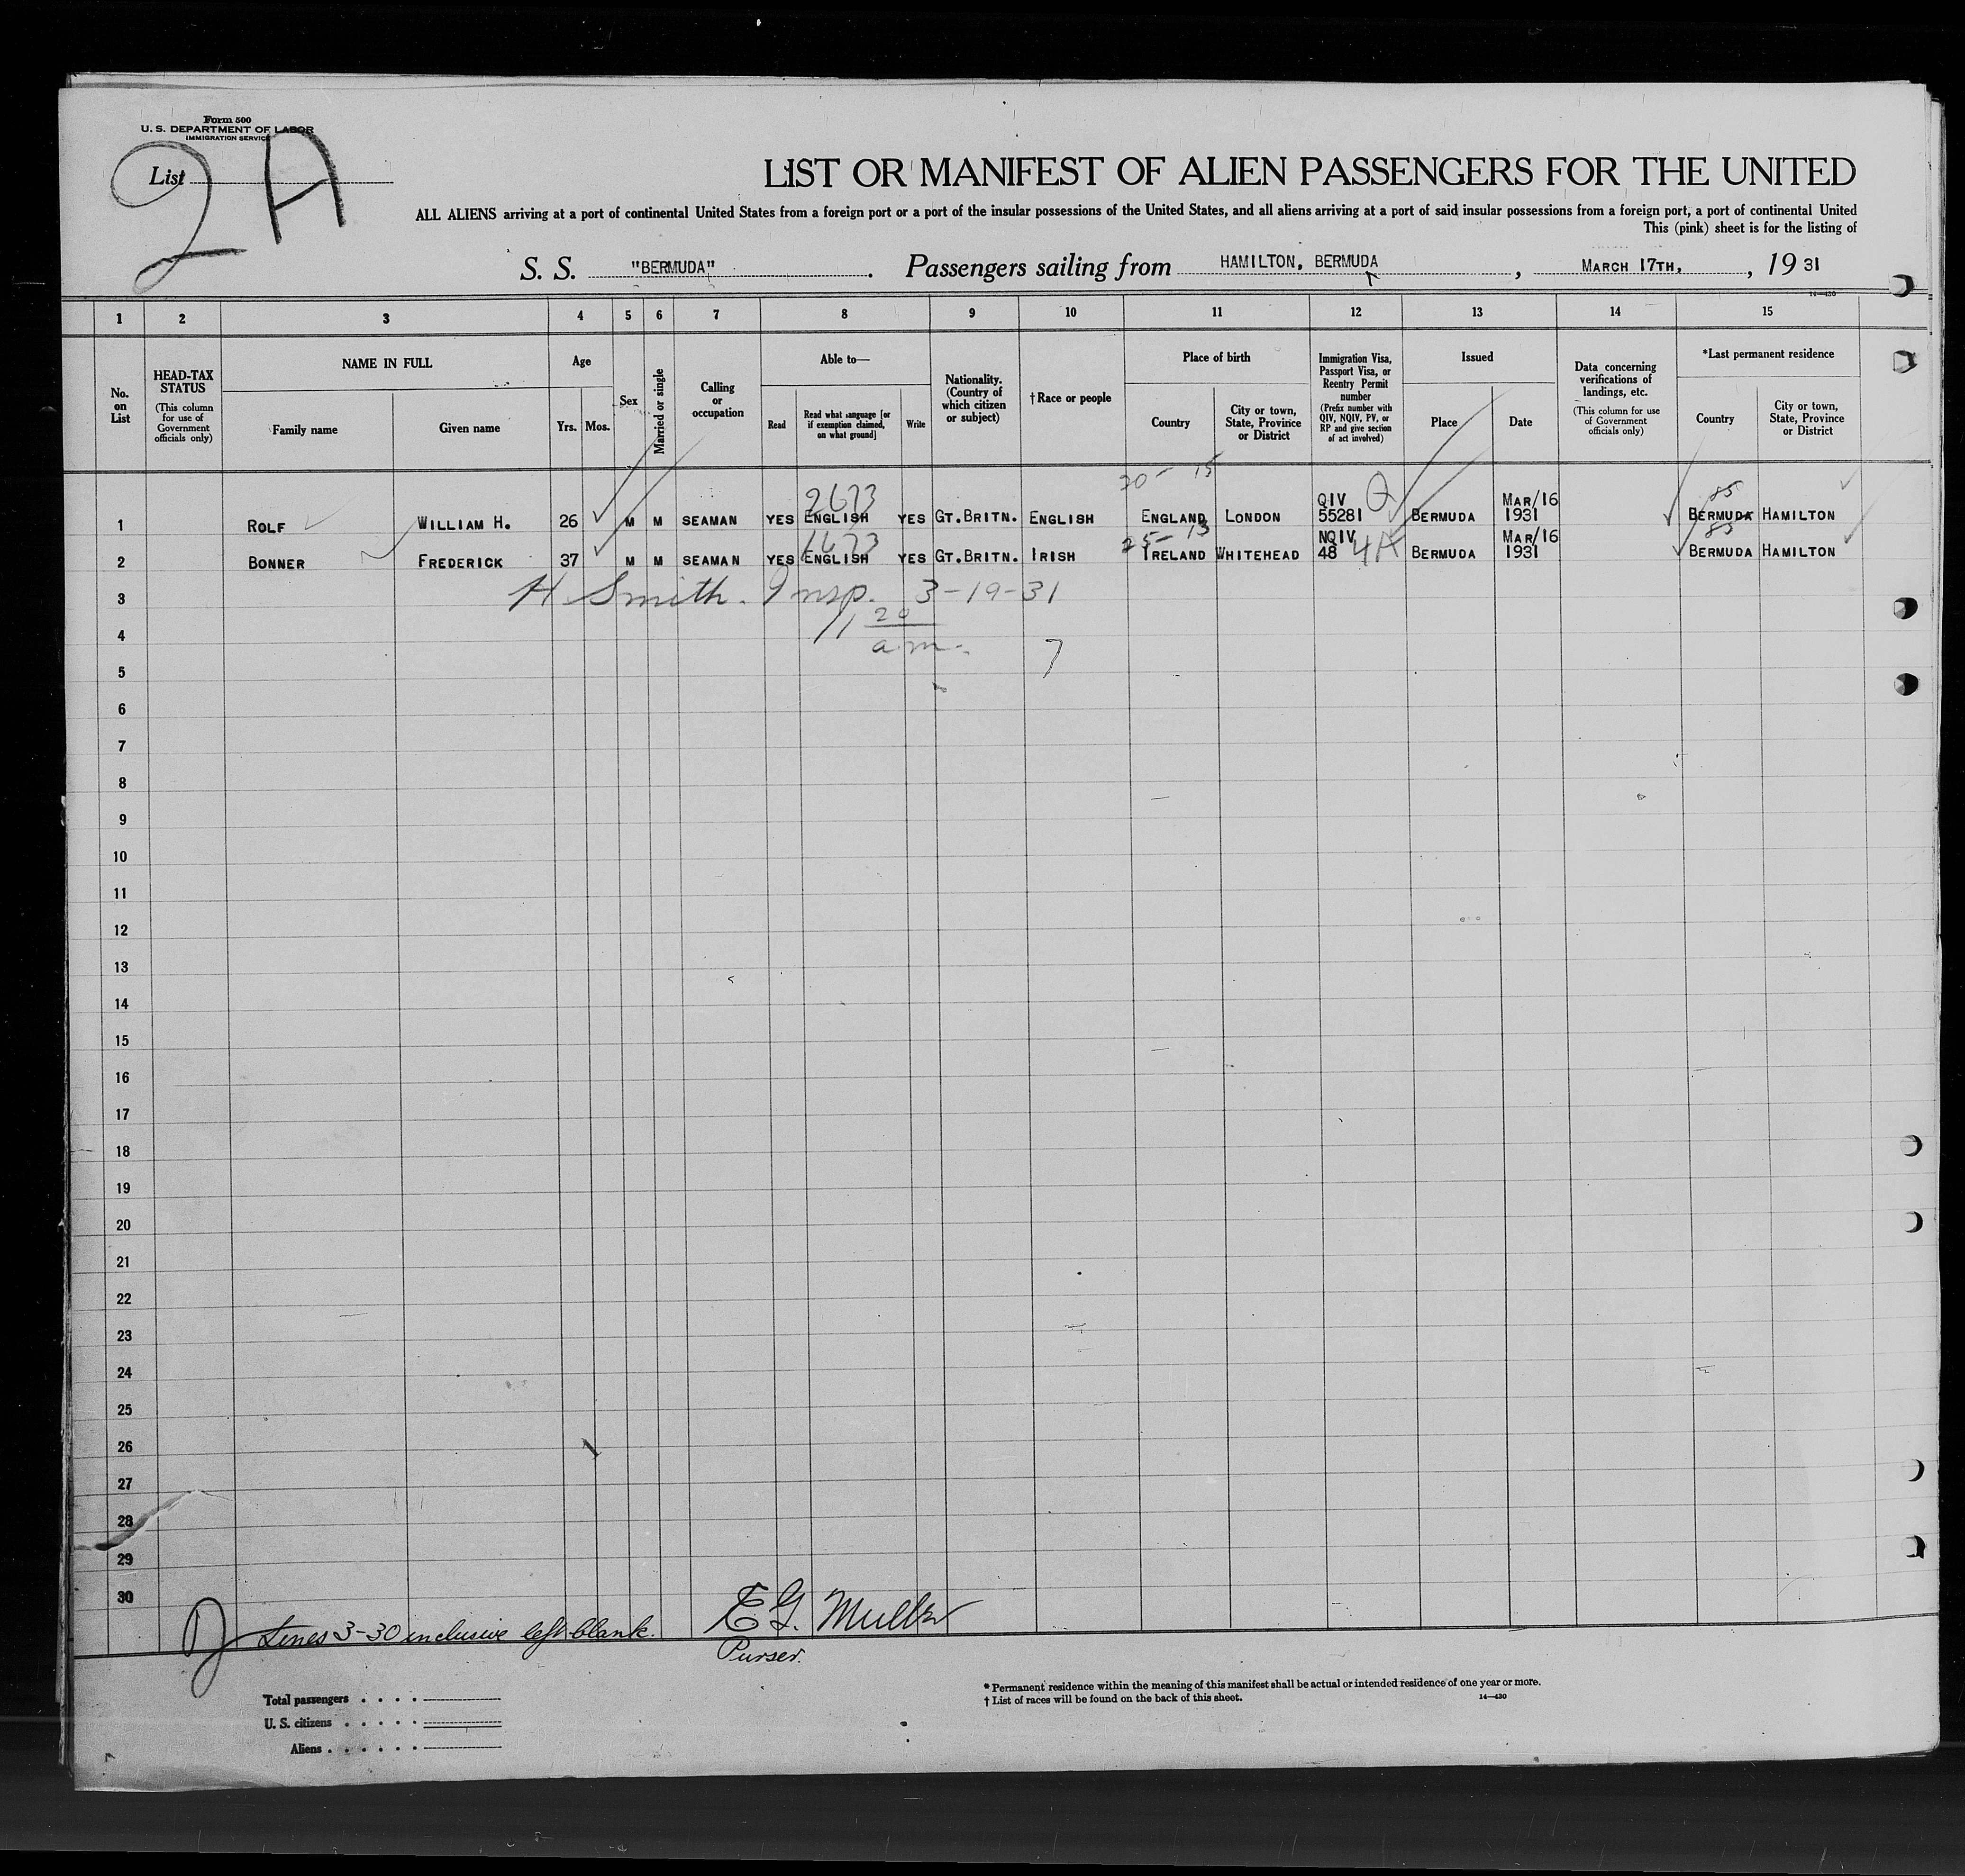 Form 500
U. S. DEPARTMENT OF LABOR
IMMIGRATION SERVICE
List 2 A
LIST OR MANIFEST OF ALIEN PASSENGERS FOR THE UNITED
ALL ALIENS arriving at a port of continental United States from a foreign port or a port of the insular possessions of the United States, and all aliens arriving at a port of said insular possessions from a foreign port, a port of continental United
This (pink) sheet is for the listing of
S. S. "BERMUDA". Passengers sailing from HAMILTON, BERMUDA, MARCH 17TH, , 19 31
14—430
1 2 3 4 5 6 7 8 9 10 11 12 13 14 15
No. on List
HEAD-TAX STATUS
(This column for use of Government officials only)
NAME IN FULL
Family name
Given name
Age
Yrs. Mos.
Sex
Married or single
Calling or occupation
Able to—
Read
Read what language [or if exemption claimed, on what ground]
Write
Nationality. (Country of which citizen or subject)
† Race or people
Place of birth
Country
City or town, State, Province or District
Immigration Visa, Passport Visa, or Reentry Permit number
(Prefix number with QIV, NQIV, PV, or RP and give section of act involved)
Issued
Place
Date
Data concerning verifications of landings, etc.
(This column for use of Government officials only)
*Last permanent residence
Country
City or town, State, Province or District
20 - 15
2673
85
1 ROLF WILLIAM H. 26 M M SEAMAN YES ENGLISH YES GT.BRITN. ENGLISH ENGLAND LONDON QIV 55281 Q BERMUDA MAR/16 1931 BERMUDA HAMILTON
25 - 13
1673
85
2 BONNER FREDERICK 37 M M SEAMAN YES ENGLISH YES GT.BRITN. IRISH IRELAND WHITEHEAD NQIV 48 BERMUDA MAR/16 1931 BERMUDA HAMILTON
3 H Smith. Insp. 3-19-31
4 11 20
a.m. 7
5
6
7
8
9
10
11
12
13
14
15
16
17
18
19
20
21
22
23
24
25
26
27
28
29
30
Lines 3-30 inclusive left blank. E G. Muller
Purser.
Total passengers
U. S. citizens
Aliens
* Permanent residence within the meaning of this manifest shall be actual or intended residence of one year or more.
† List of races will be found on the back of this sheet. 14—430